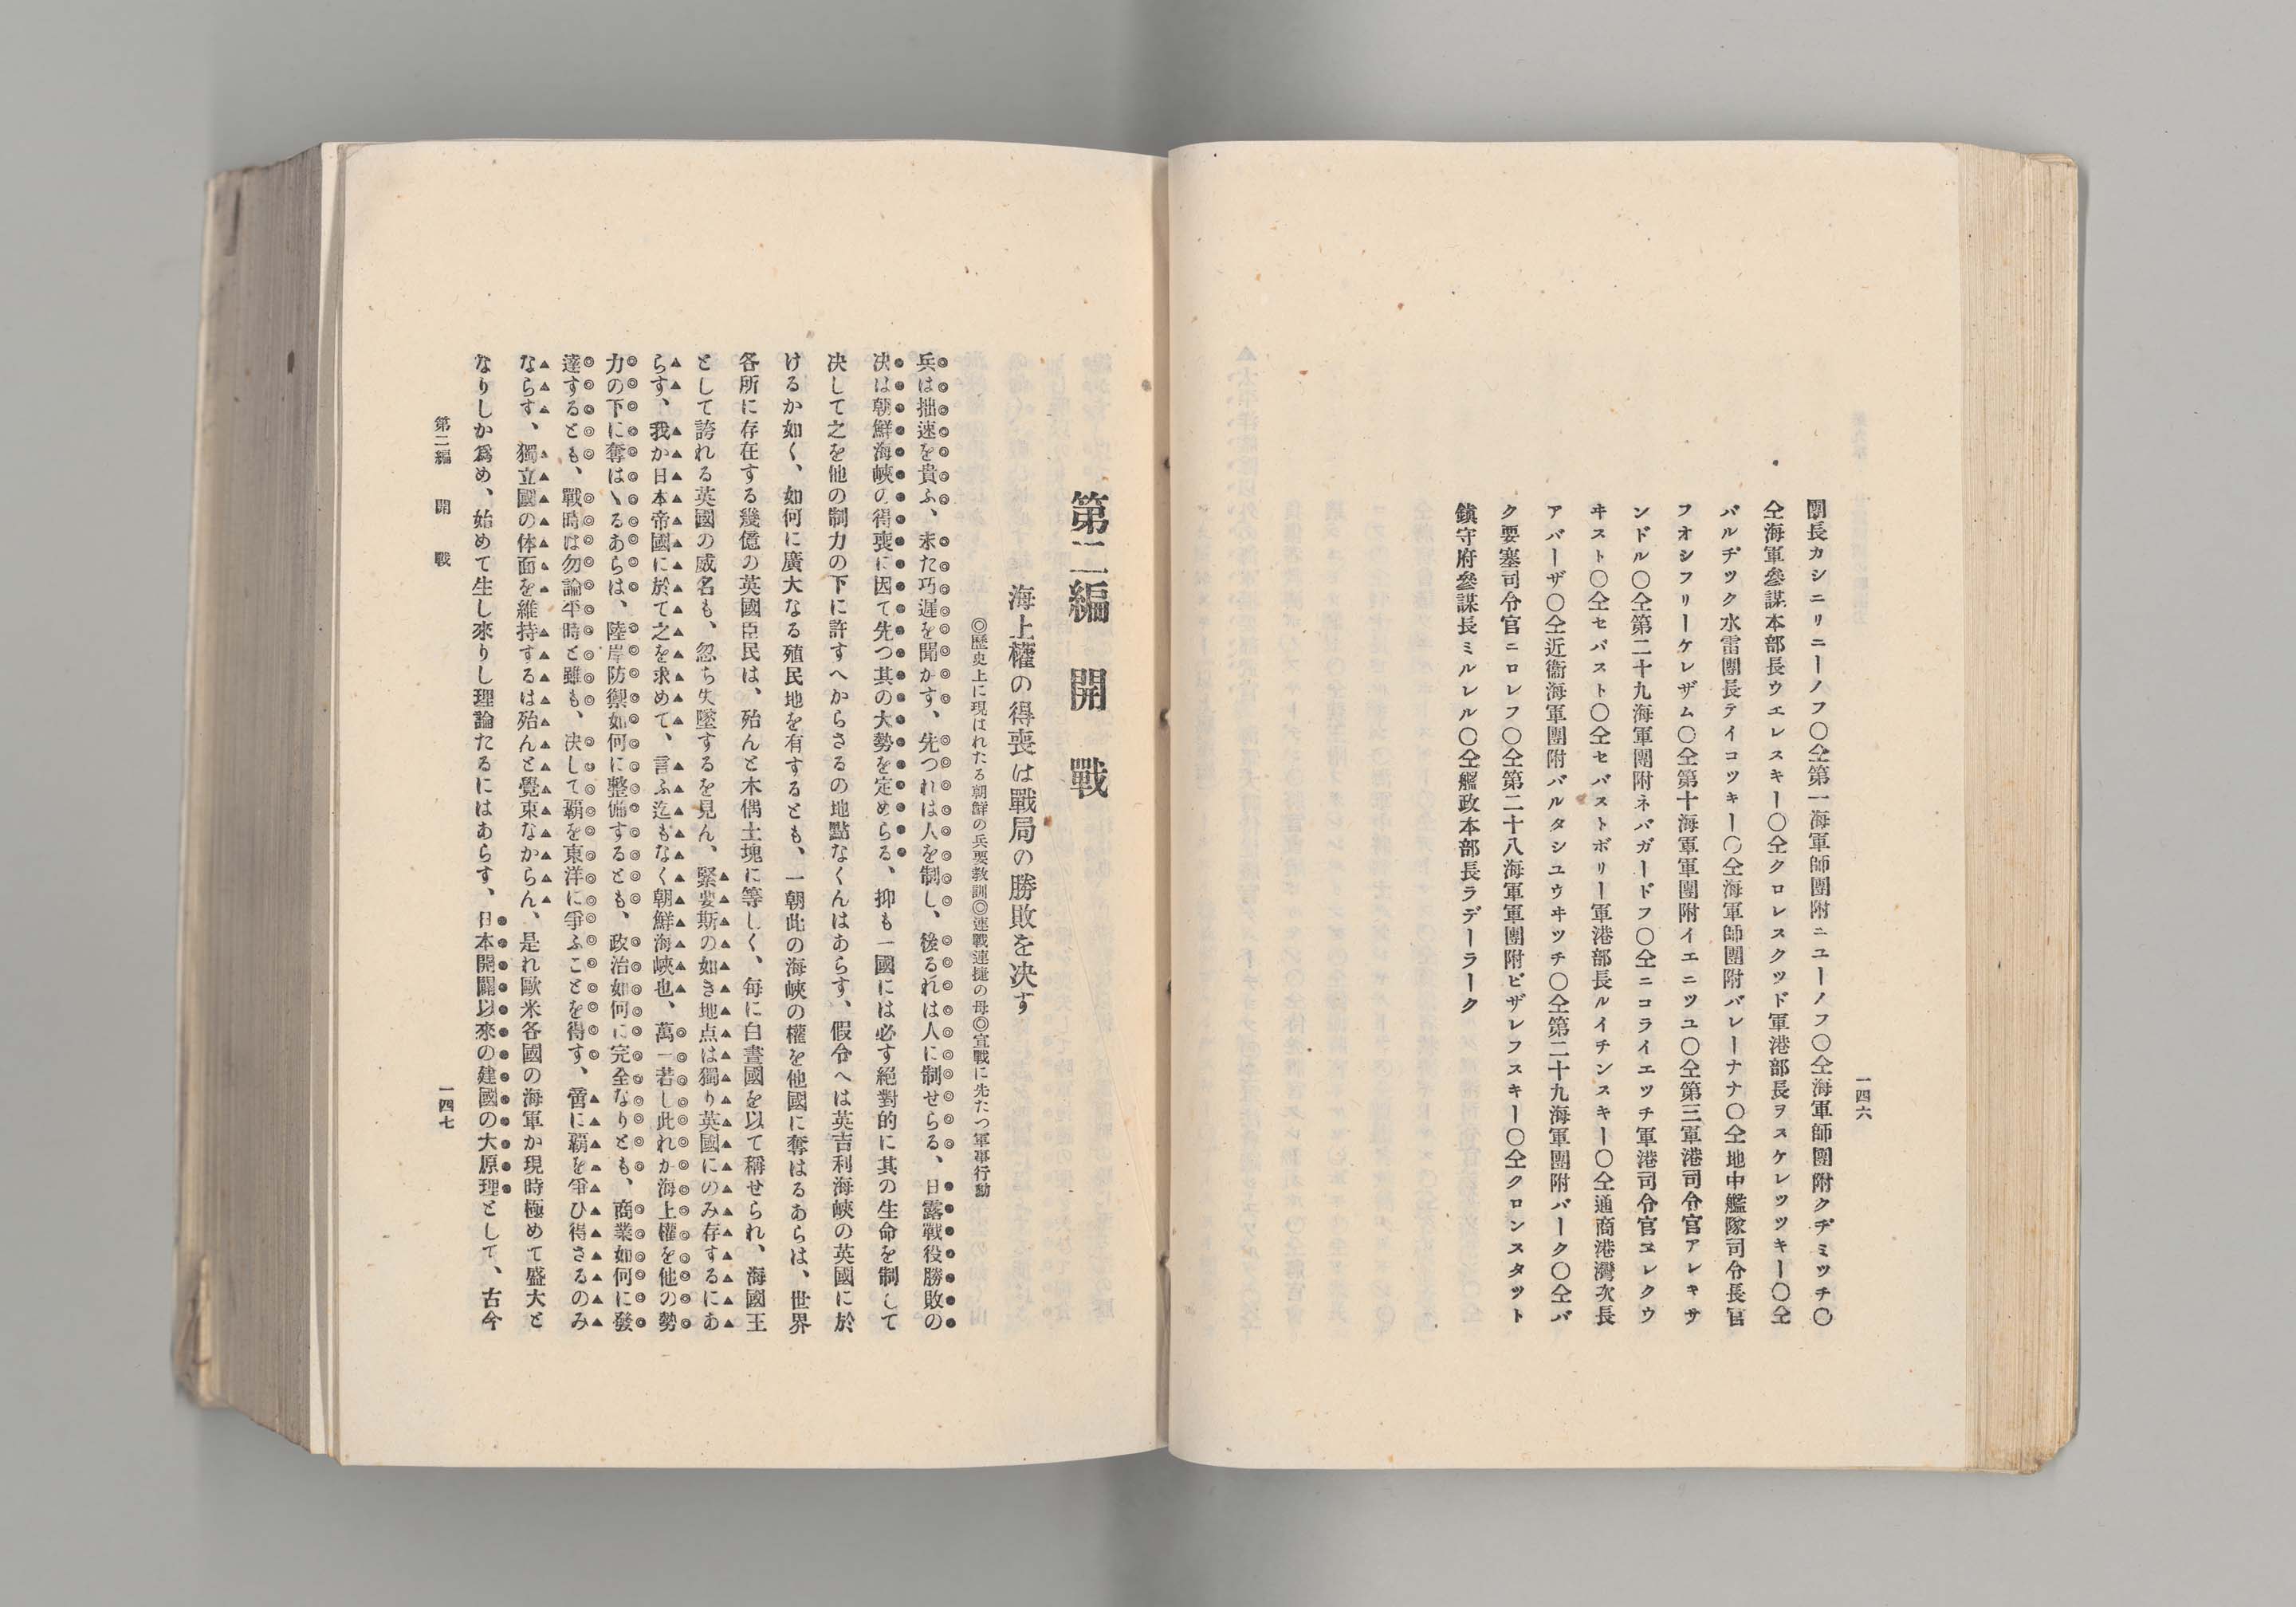 一四六
團長カシニリニーノフ〇仝第一海軍師團附ニユーノフ〇仝海軍師團附クヂミツチ〇
仝海軍參謀本部長ウエレスキー〇仝クロレスクツド軍港部長ヲスケレツツキー〇仝
バルヂツク水雷團長テイコツキー〇仝海軍師團附バレーナナ〇仝地中艦隊司令長官
フオシフリーケレザム〇仝第十海軍軍團附イエニツユ〇仝第三軍港司令官アレキサ
ンドル〇仝第二十九海軍團附ネバガードフ〇仝ニコライエツチ軍港司令官ヱレクウ
ヰスト〇仝セバスト〇仝セバストボリー軍港部長ルイチンスキー〇仝通商港灣次長
アバーザ〇仝近衞海軍團附バルタシユウヰツチ〇仝第二十九海軍團附バーク〇仝バ
ク要塞司令官ニロレフ〇仝第二十八海軍軍團附ビザレフスキー〇仝クロンスタツト
鎮守府參謀長ミルレル〇仝艦政本部長ラデーラーク
第二編　開　戰
海上權の得喪は戰局の勝敗を决す
◎歷史上に現はれたる朝鮮の兵要敎訓◎連戰連捷の母◎宣戰に先たつ軍事行動
兵は拙速を貴ふ、未た巧遲を聞かす、先つれは人を制し、後るれは人に制せらる、日露戰役勝敗の
决は朝鮮海峽の得喪に因て先つ其の大勢を定めらる、抑も一國には必す絕對的に其の生命を制して
决して之を他の制力の下に許すへからさるの地點なくんはあらす、假令へは英吉利海峽の英國に於
けるか如く、如何に廣大なる殖民地を有するとも、一朝此の海峽の權を他國に奪はるあらは、世界
各所に存在する幾億の英國臣民は、殆んと木偶土塊に等しく、每に白晝國を以て稱せられ、海國王
として誇れる英國の威名も、忽ち失墜するを見ん、緊要斯の如き地点は獨り英國にのみ存するにあ
らす、我か日本帝國に於て之を求めて、言ふ迄もなく朝鮮海峽也、萬一若し此れか海上權を他の勢
力の下に奪はゝるあらは、陸岸防禦如何に整備するとも、政治如何に完全なりとも、商業如何に發
達するとも、戰時は勿論平時と雖も、决して覇を東洋に爭ふことを得す、啻に覇を爭ひ得さるのみ
ならす、獨立國の体面を維持するは殆んと覺束なからん、是れ歐米各國の海軍か現時極めて盛大と
なりしか爲め、始めて生し來りし理論たるにはあらす、日本開闢以來の建國の大原理として、古今
第二編　開　戰
一四七